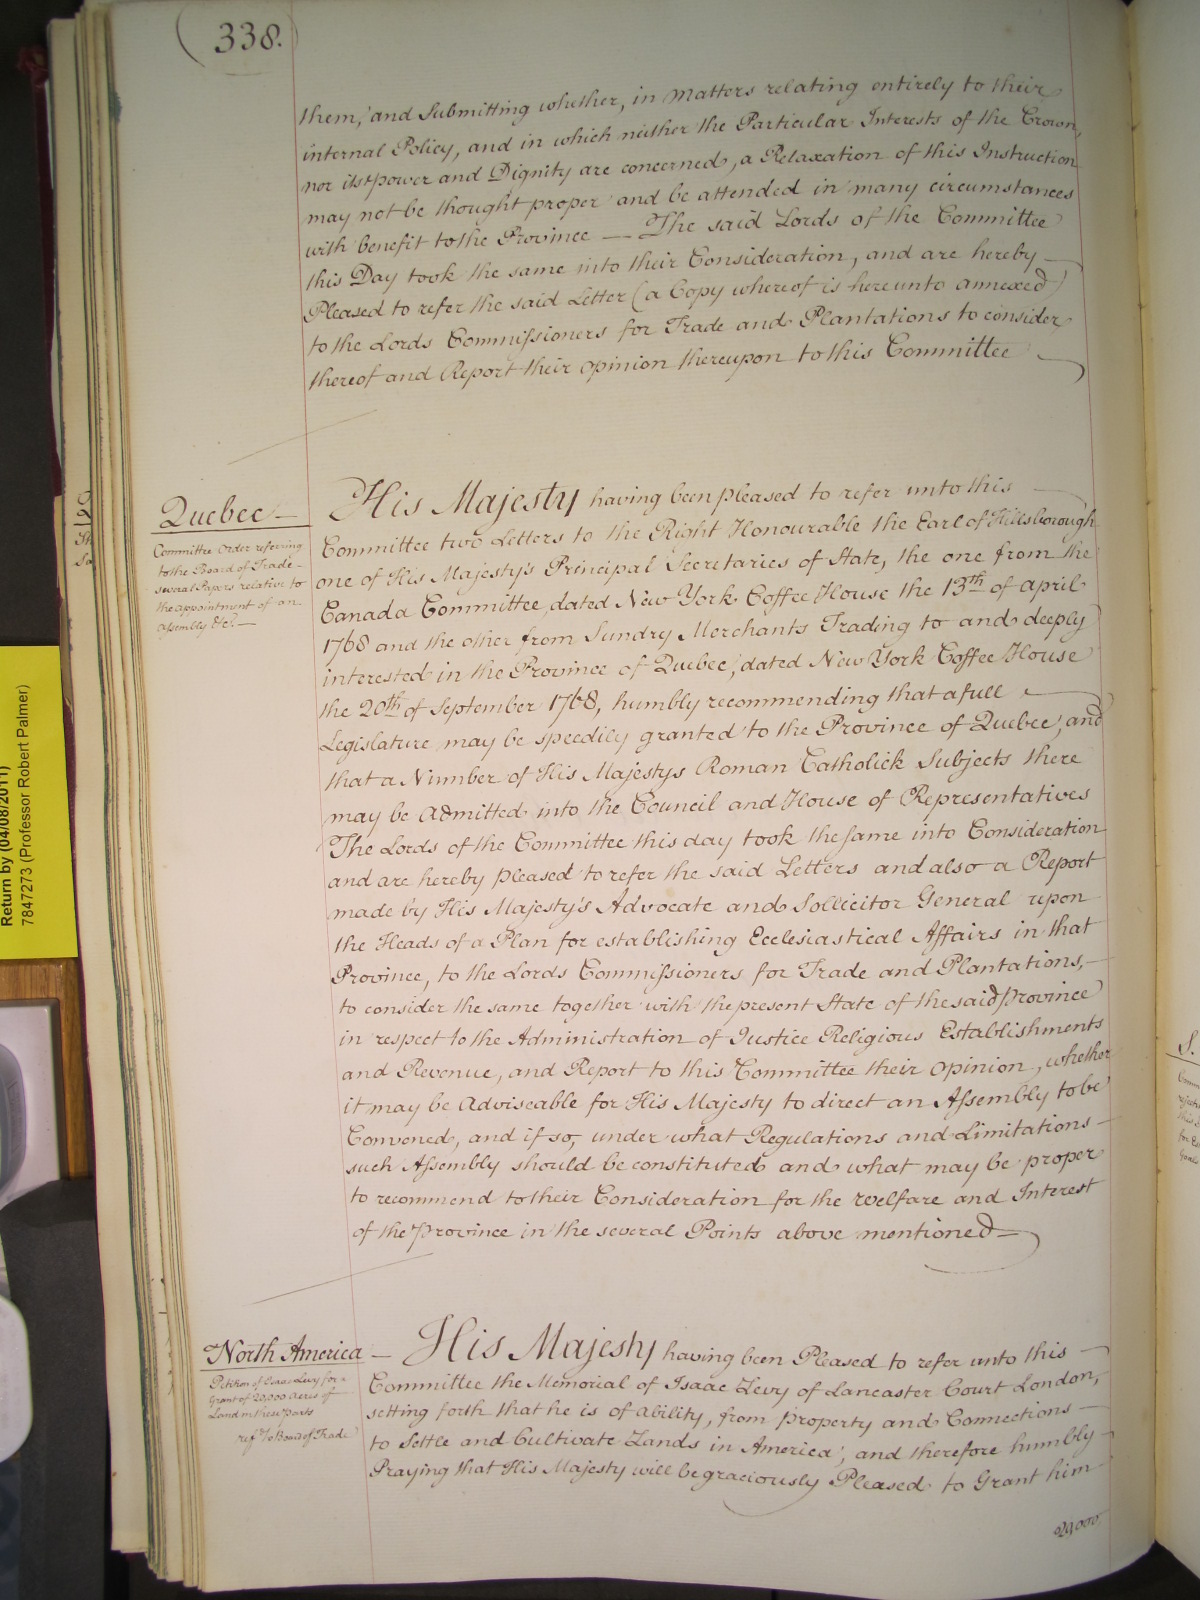 (338.)
them, and Submitting whether, in Matters relating entirely to their
internal Policy, and in which neither the Particular Interests of the Crown,
nor its power and Dignity are concerned, a Relaxation of this Instruction
may not be thought proper and be attended in many circumstances
with benefit to the Province — The said Lords of the Committee
this Day took the same into their Consideration, and are hereby —
Pleased to refer the said Letter (a Copy whereof is hereunto annexed)
to the Lords Commissioners for Trade and Plantations to consider
thereof and Report their Opinion thereupon to this Committee —
Quebec —
Committee Order referring
to the Board of Trade —
several Papers relative to
the appointment of an
Assembly &c. —
His Majesty having been pleased to refer unto this —
Committee two Letters to the Right Honourable the Earl of Hillsborough
one of His Majesty's Principal Secretaries of State, the one from the
Canada Committee, dated New York Coffee House the 13th of April
1768 and the other from Sundry Merchants Trading to and deeply
interested in the Province of Quebec, dated New York Coffee House
the 20th of September 1768, humbly recommending that a full —
Legislature may be speedily granted to the Province of Quebec, and
that a Number of His Majestys Roman Catholick Subjects there
may be Admitted into the Council and House of Representatives
The Lords of the Committee this day took the same into Consideration
and are hereby pleased to refer the said Letters and also a Report
made by His Majesty's Advocate and Sollicitor General upon
the Heads of a Plan for establishing Ecclesiastical Affairs in that
Province, to the Lords Commissioners for Trade and Plantations, —
to consider the same together with the present State of the said Province
in respect to the Administration of Justice Religious Establishments
and Revenue, and Report to this Committee their Opinion, whether
it may be Adviseable for His Majesty to direct an Assembly to be
Convened, and if so, under what Regulations and Limitations —
such Assembly should be constituted and what may be proper
to recommend to their Consideration for the Welfare and Interest
of the Province in the several Points above mentioned —
North America —
Petition of Isaac Levy for a
Grant of 20,000 Acres of
Land in these parts
refd. to Board of Trade
His Majesty having been Pleased to refer unto this —
Committee the Memorial of Isaac Levy of Lancaster Court London,
setting forth that he is of ability, from property and Connections —
to Settle and Cultivate Lands in America; and therefore humbly —
Praying that His Majesty will be graciously Pleased to Grant him
20,000
Return by (04/08/2011)
7847273 (Professor Robert Palmer)